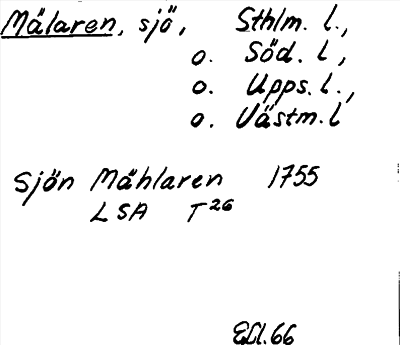 Mälaren, sjö, Sthlm. l.,
o. Söd. l,
o. Upps. l.,
o. Västm. l
Sjön Mähлaren 1755
LSA T26
66